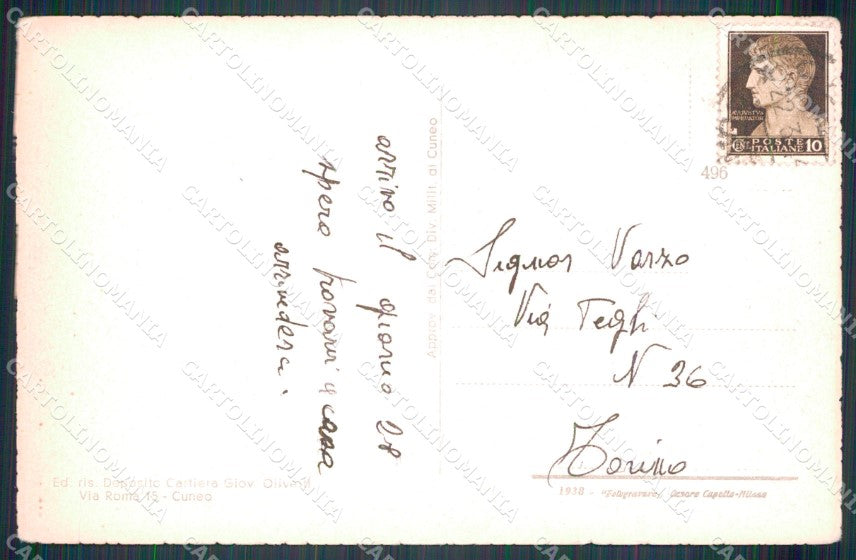 arrivo il giorno 28
spero trovarvi a casa
arrivederci.
Approv. dal Com. Div. Milit. di Cuneo
Ed. ris. Deposito Cartiera Giov. Oliveri
Via Roma 15 - Cuneo
AVGVSTVS
IMPERATOR
POSTE
ITALIANE 10
496
Signor Varzo
Via
N 36
Torino
1938 - "Fotogravure" Cesare Capello-Milano
CARTOLINOMANIA